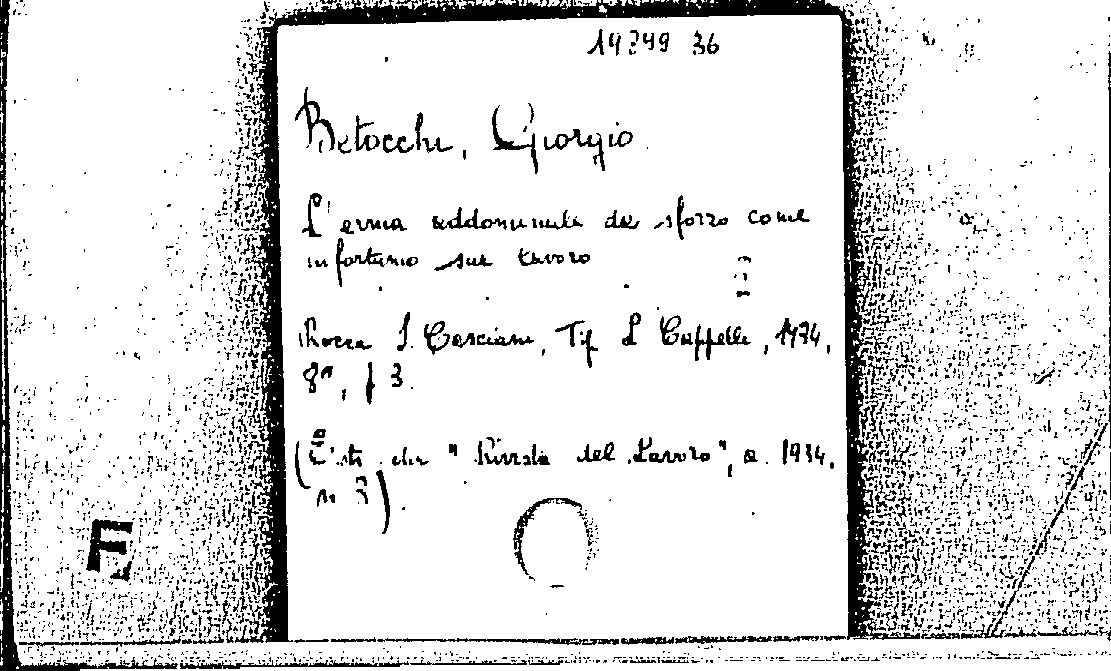 Betocchi, Giorgio.
L'ernia addominale da sforzo come
infortunio sul lavoro
Rocca S. Casciano, Tip L Cappelli, 1934,
8°, f 3.
(Estr. da "Rivista del Lavoro", a. 1934,
n. 3).
F